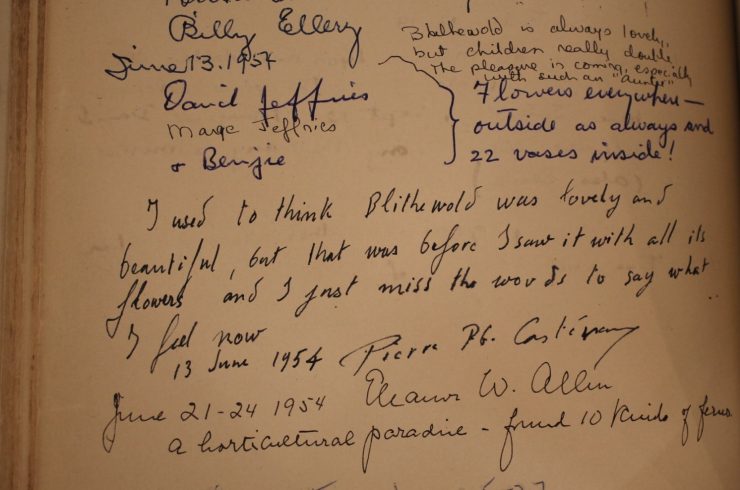 Billy Ellery
June 13. 1954
Blithewold is always lovely,
but children really double
the pleasure in coming, especially
with such an "auntie"
David Jeffries
Marge Jeffries
+ Benjie
Flowers everywhere —
outside as always and
22 vases inside!
I used to think Blithewold was lovely and
beautiful, but that was before I saw it with all its
flowers and I just miss the words to say what
I feel now
13 June 1954 Pierre Ph.
June 21-24 1954 Eleanor W. Allen
a horticultural paradise - found 10 kinds of ferns